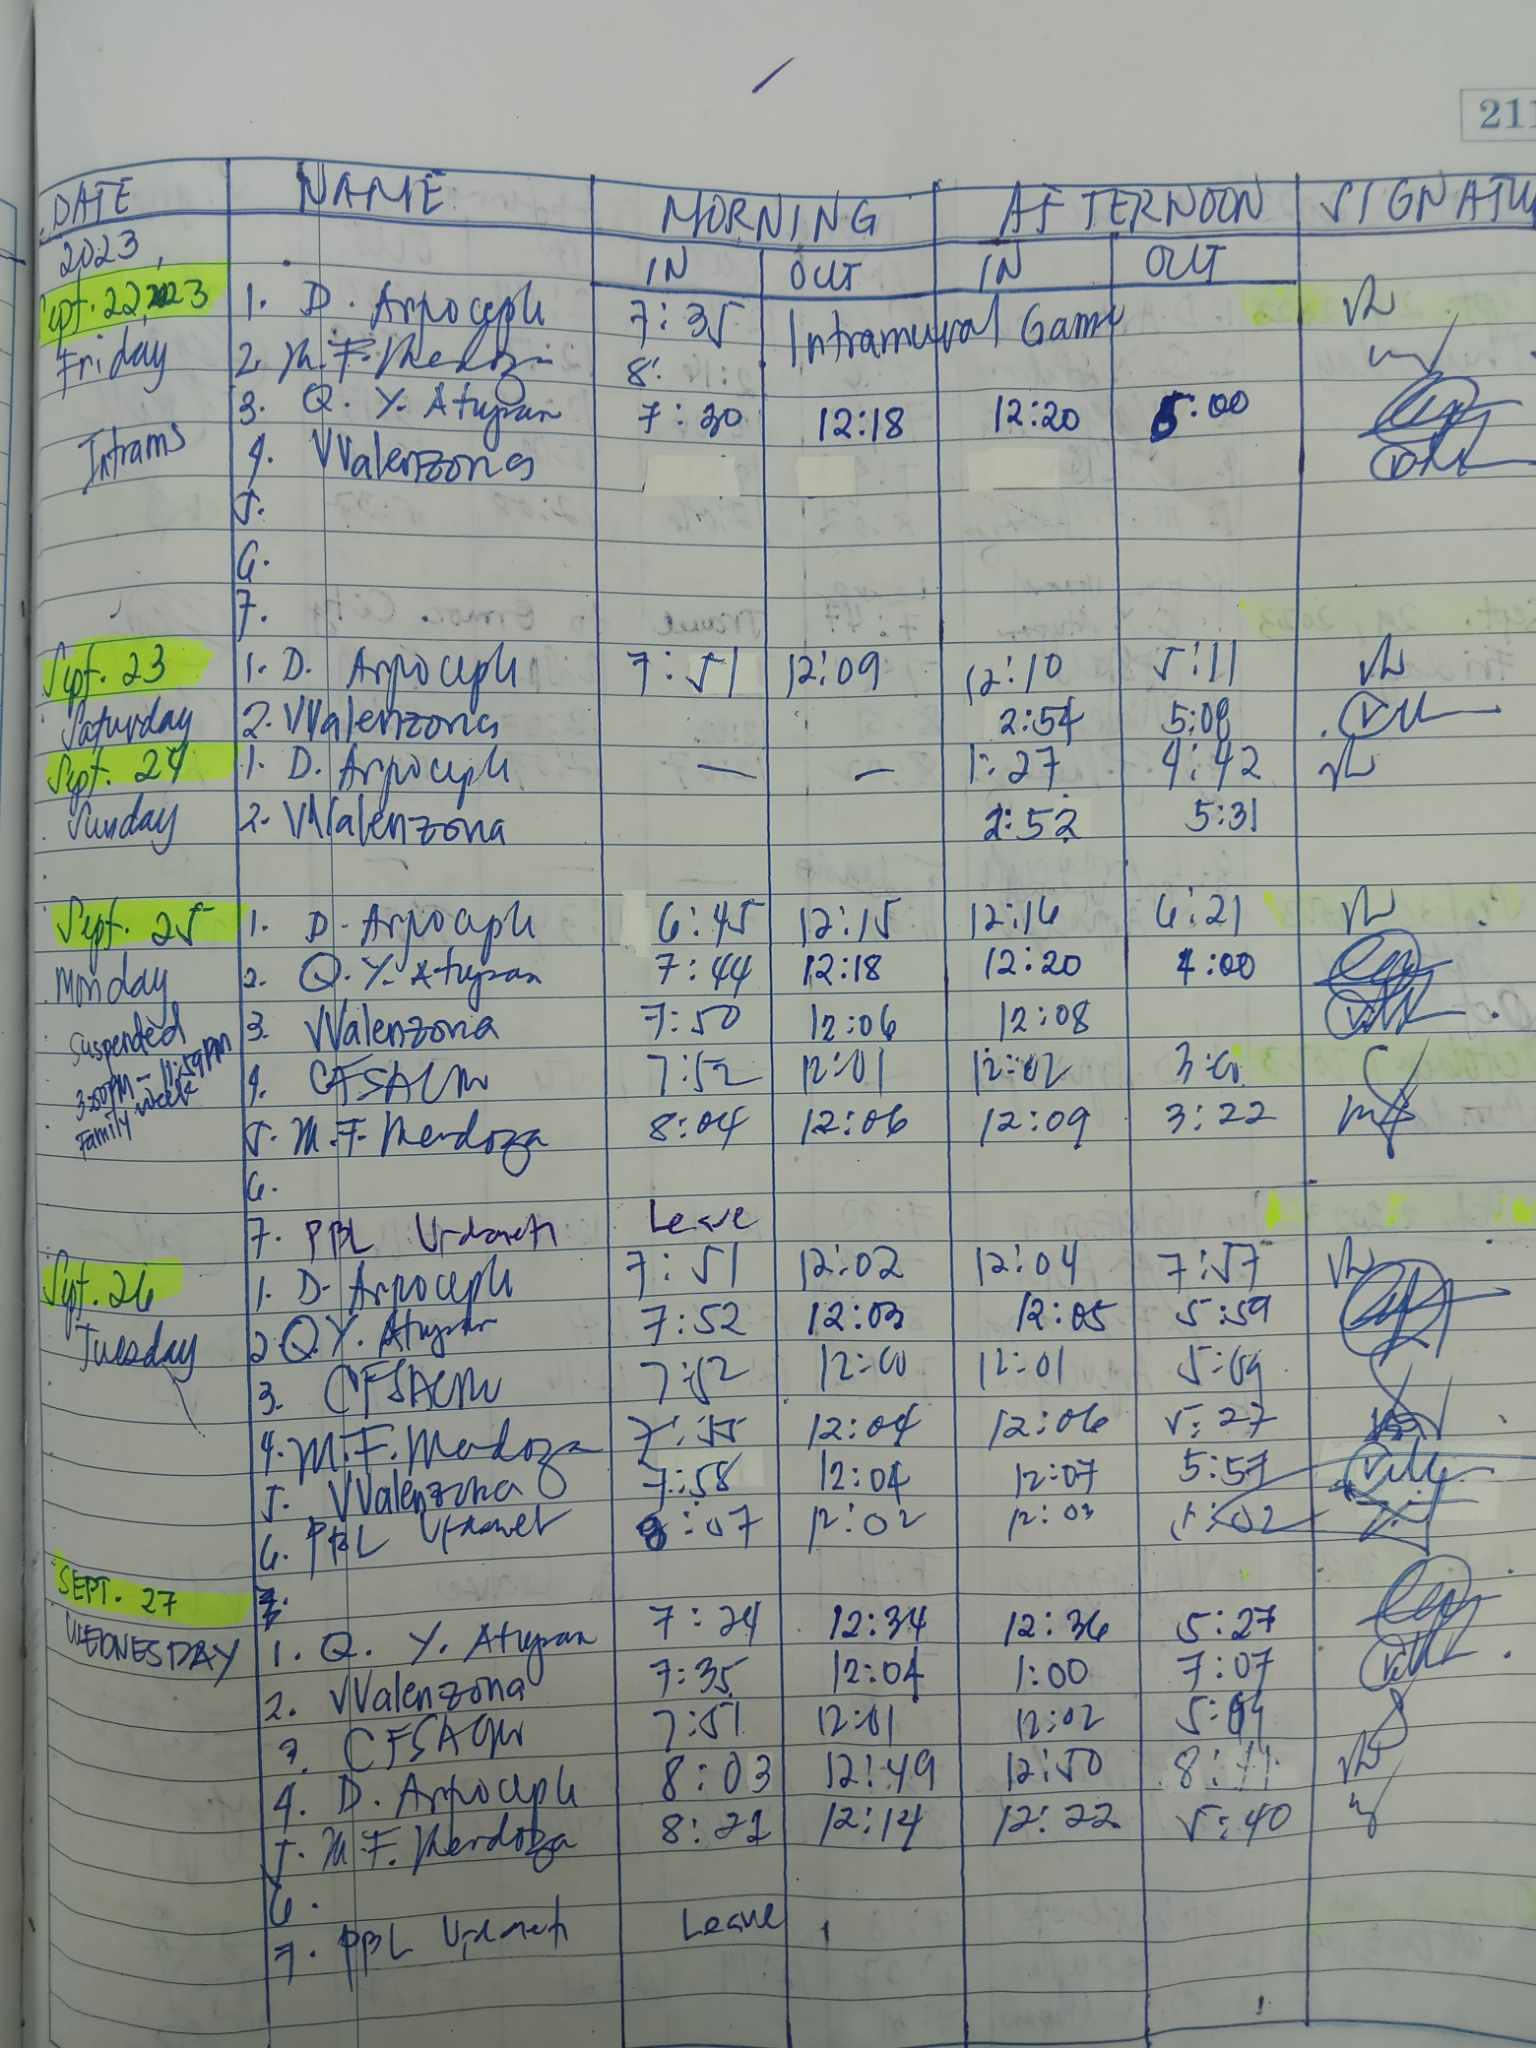 211
DATE NAME MORNING AFTERNOON SIGNATU
2023, IN OUT IN OUT
Sept. 22, 2023 1. D. 7:35 Intramural Game
Friday 2. M. F. Mendoza 8:
3. Q. Y. Atupan 7:30 12:18 12:20 5:00
Intrams 4. VValenzona
5.
6.
7.
Sept. 23 1. D. 7:51 12:09 12:10 5:11
Saturday 2. VValenzona 2:54 5:08
Sept. 24 1. D. — — 1:27 4:42
Sunday 2. VValenzona 2:52 5:31
Sept. 25 1. D. 6:45 12:15 12:16 6:21
Monday 2. Q. Y. Atupan 7:44 12:18 12:20 4:00
Suspended 3. VValenzona 7:50 12:06 12:08
3:00PM - 11:59PM 4. 7:52 12:01 12:02
Family week 5. M. F. Mendoza 8:04 12:06 12:09 3:22
6.
7. PBL Leave
Sept. 26 1. D. 7:51 12:02 12:04 7:57
Tuesday 2. Q. Y. Atupan 7:52 12:03 12:05 5:59
3. 7:52 12:00 12:01 5:09
4. M. F. Mendoza 7:55 12:04 12:06 5:27
5. VValenzona 7:58 12:04 12:07 5:57
6. PBL 8:07 12:02 12:03 5:02
SEPT. 27
WEDNESDAY 1. Q. Y. Atupan 7:24 12:34 12:36 5:27
2. VValenzona 7:35 12:04 1:00 7:07
3. 7:51 12:01 12:02
4. D. 8:03 12:49 12:50 8:11
5. M. F. Mendoza 8:21 12:14 12:22 5:40
6.
7. PBL Leave